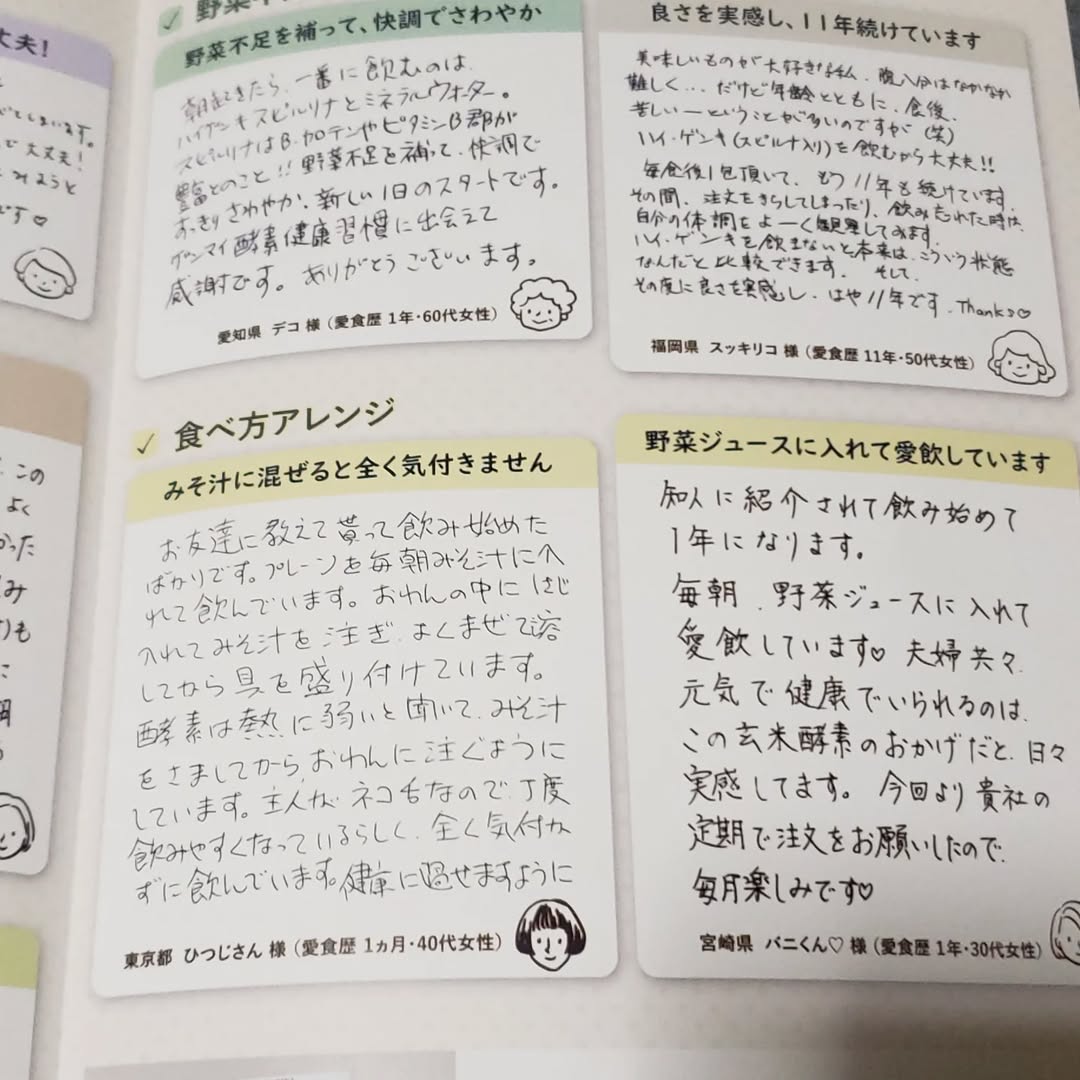 丈夫!
大丈夫!
みようと
です♡
この
よく
かった
も
に
野菜不足を補って、快調でさわやか
朝起きたら、一番に飲むのは、
ハイゲンキスピルリナとミネラルウォーター。
スピルリナはB・カロテンやビタミンB群が
豊富とのこと!!野菜不足を補って、快調で
すっきりさわやか、新しい1日のスタートです。
ゲンマイ酵素健康習慣に出会えて
感謝です。ありがとうございます。
愛知県 デコ 様(愛食歴 1年・60代女性)
良さを実感し、11年続けています
美味しいものが大好きな私、腹八分はなかなか
難しく…だけど年齢とともに、食後、
苦しいーということが多いのですが(笑)
ハイ・ゲンキ(スピルナ入り)を飲むから大丈夫!!
毎食後1包頂いて、もう11年も続けています。
その間、注文をきらしてしまったり、飲み忘れた時は、
自分の体調をよーく観察してみます。
ハイ・ゲンキを飲まないと本来は、こういう状態
なんだと比較できます。そして、
その度に良さを実感し、はや11年です。Thanks♡
福岡県 スッキリコ 様(愛食歴 11年・50代女性)
✓ 食べ方アレンジ
みそ汁に混ぜると全く気付きません
お友達に教えて貰って飲み始めた
ばかりです。プレーンを毎朝みそ汁に入
れて飲んでいます。おわんの中にはじ
入れてみそ汁を注ぎ、よくまぜて溶
してから具を盛り付けています。
酵素は熱に弱いと聞いて、みそ汁
をさましてから、おわんに注ぐように
しています。主人がネコ舌なので、丁度
飲みやすくなっているらしく、全く気付か
ずに飲んでいます。健康に過せますように
東京都 ひつじさん 様(愛食歴 1ヵ月・40代女性)
野菜ジュースに入れて愛飲しています
知人に紹介されて飲み始めて
1年になります。
毎朝、野菜ジュースに入れて
愛飲しています♡ 夫婦共々、
元気で健康でいられるのは、
この玄米酵素のおかげだと、日々
実感してます。今回より貴社の
定期で注文をお願いしたので、
毎月楽しみです♡
宮崎県 バニくん♡ 様(愛食歴 1年・30代女性)